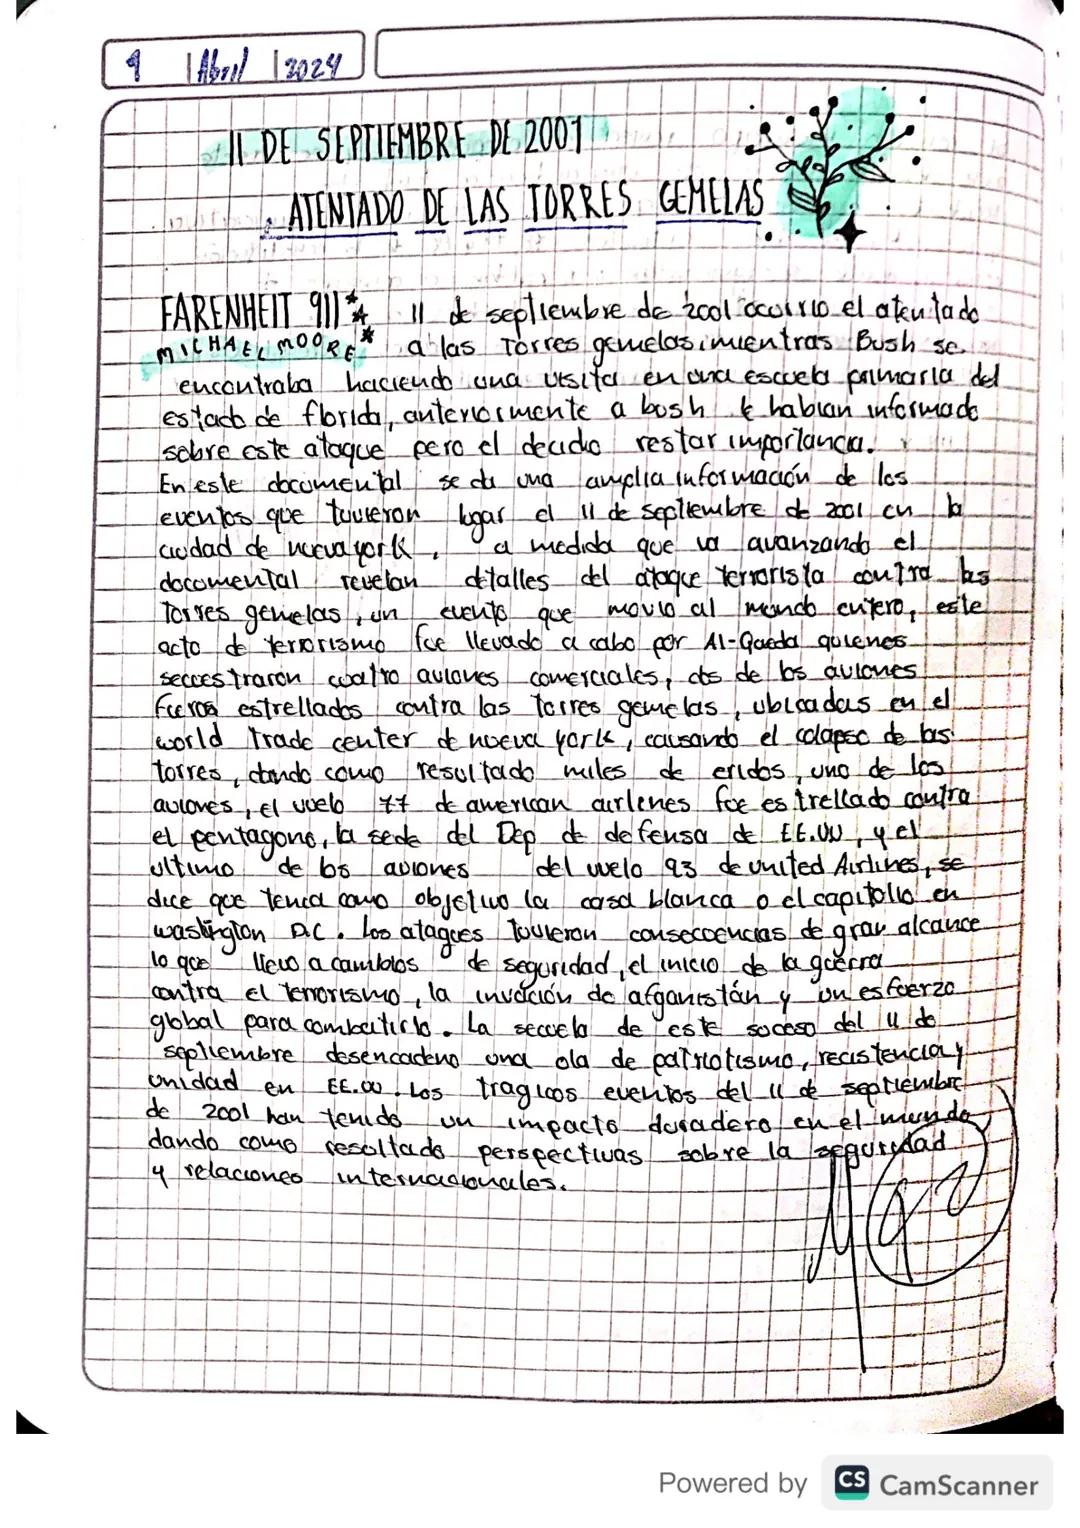 9 | Abril | 2024
11 DE SEPTIEMBRE DE 2001
ATENTADO DE LAS TORRES GEMELAS
FARENHEIT 911 11 de septiembre de 2001 ocurrio el atentado
MICHAEL MOORE a las Torres gemelas, mientras Bush se
encontraba haciendo una visita en una escuela primaria del
estado de florida, anteriormente a bush le habian informado
sobre este ataque pero el decidio restar importancia.
En este documental se da una amplia información de los
eventos que tuvieron lugar el 11 de septiembre de 2001 en la
ciudad de nueva york, a medida que va avanzando el
documental revelan detalles del ataque terrorista contra las
Torres gemelas, un evento que movio al mundo entero, este
acto de terrorismo fue llevado a cabo por Al-Qaeda quienes
seccestraron cuatro aviones comerciales, dos de los aviones
fueron estrellados contra las Torres gemelas, ubicadas en el
world Trade center de nueva york, causando el colapso de las
torres, dando como resultado miles de eridos, uno de los
aviones, el vuelo 77 de american airlenes fue estrellado contra
el pentagono, la sede del Dep de defensa de EE.UU, y el
ultimo de los aviones del vuelo 93 de united Airlines, se
dice que tenia como objetivo la casa blanca o el capitolio en
washington D.C. Los ataques tuvieron consecuencias de gran alcance
lo que llevo a cambios de seguridad, el inicio de la guerra
contra el terrorismo, la invación de afganistán y un esfuerzo
global para combatirlo. La secuela de este suceso del 11 de
septiembre desencadeno una ola de patriotismo, recistencia y
unidad en EE.UU. Los tragicos eventos del 11 de septiembre
de 2001 han tenido un impacto duradero en el mundo
dando como resultado perspectivas sobre la seguridad
y relaciones internacionales.
Powered by CS CamScanner